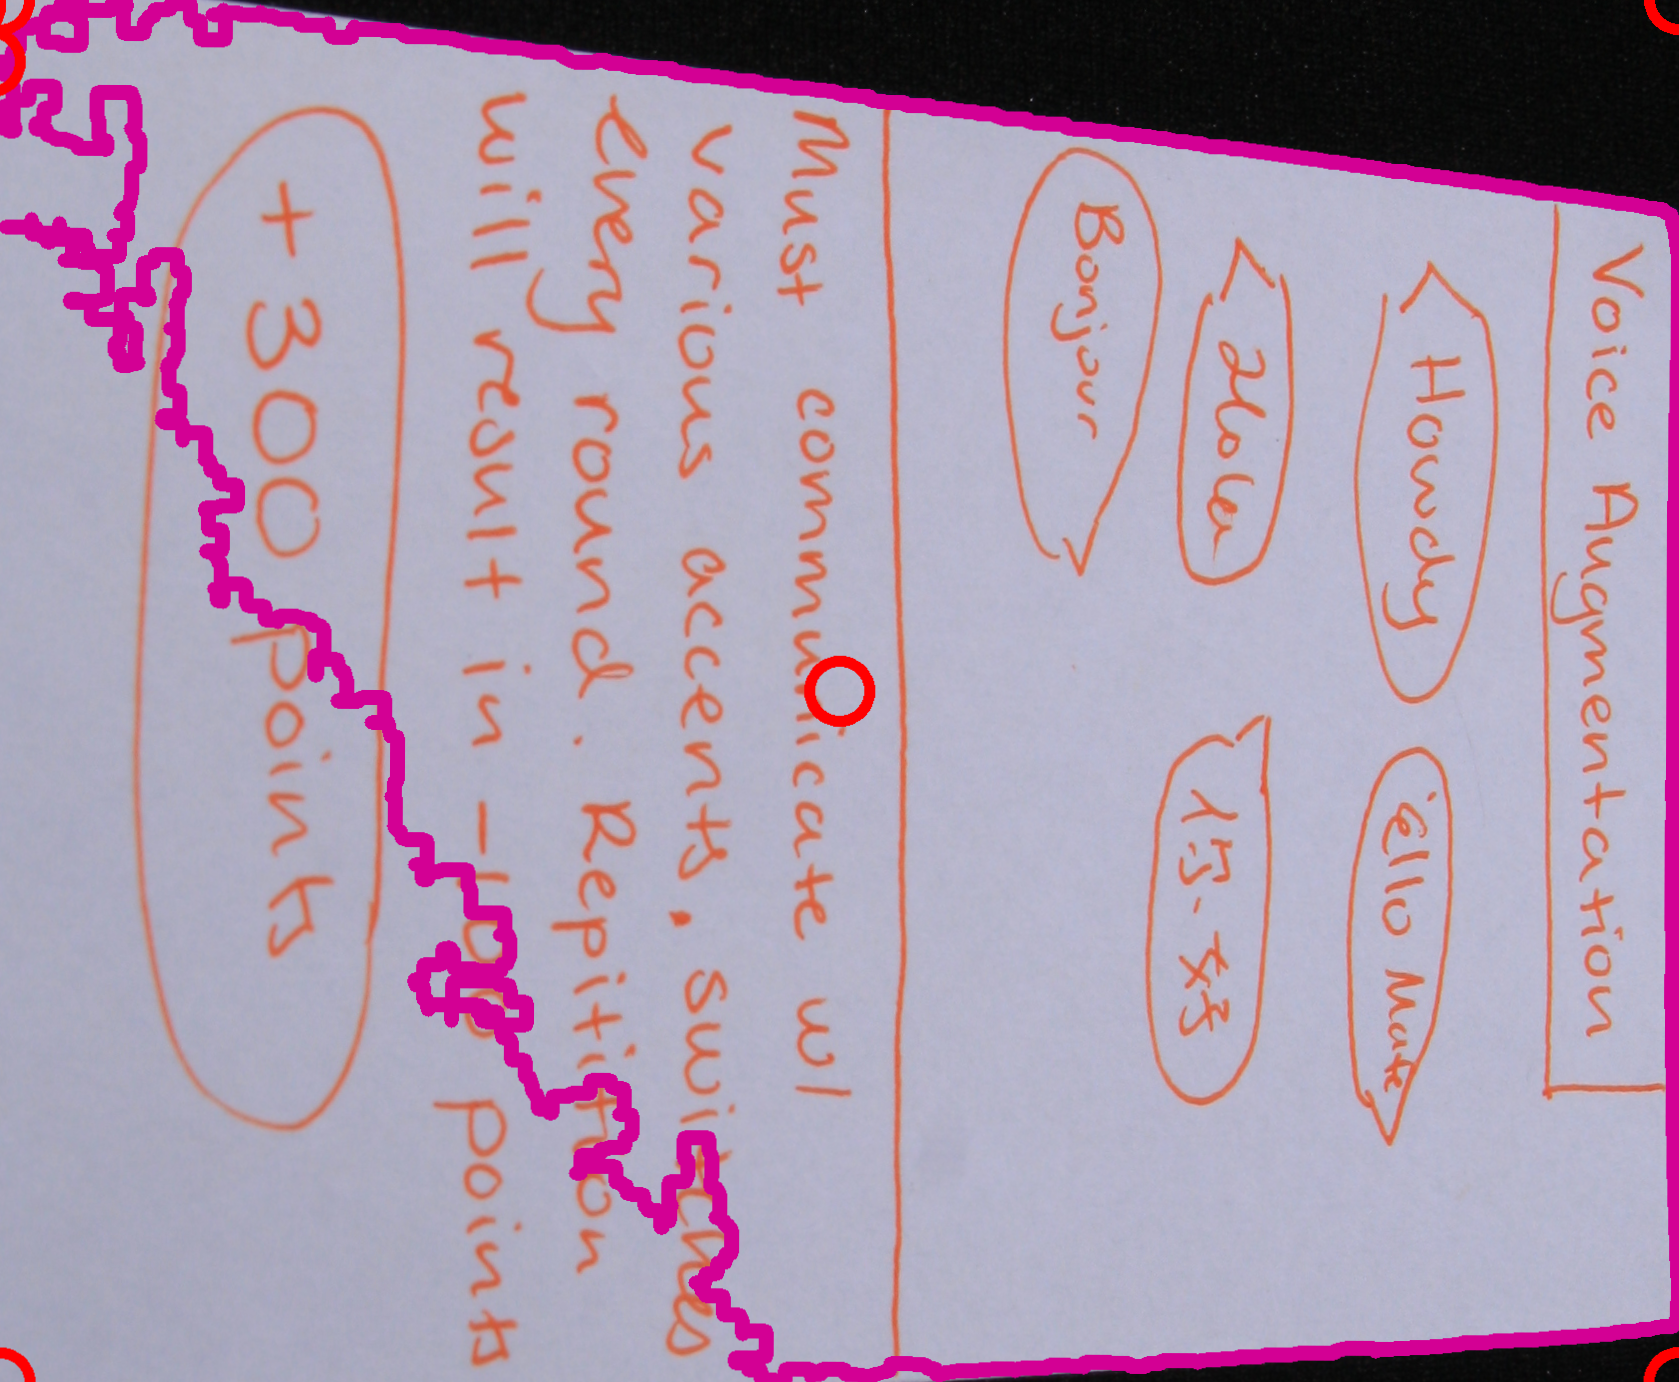 Voice Augmentation
Howdy
'ello Mate
Hola
你好
Bonjour
Must communicate w/
various accents, switches
every round. Repitition
will result in -100 points
+300 points